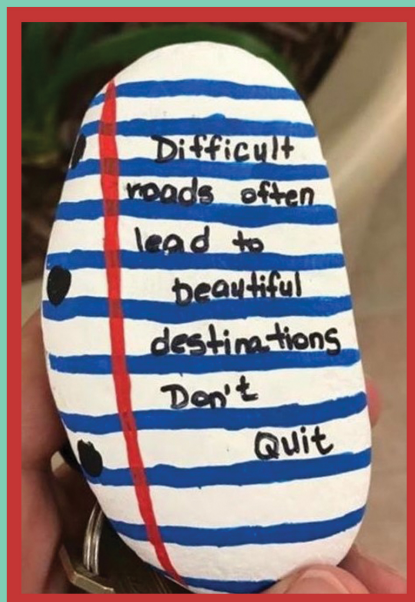 Difficult
roads often
lead to
beautiful
destinations
Don't
Quit